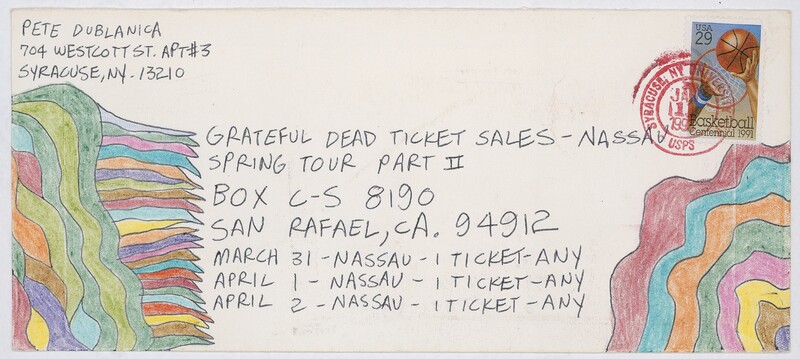 PETE DUBLANICA
704 WESTCOTT ST. APT#3
SYRACUSE, NY - 13210
USA
29
Basketball
Centennial 1991
SYRACUSE, NY
USPS
GRATEFUL DEAD TICKET SALES - NASSAU
SPRING TOUR PART II
BOX C-S 8190
SAN RAFAEL, CA. 94912
MARCH 31 - NASSAU - 1 TICKET - ANY
APRIL 1 - NASSAU - 1 TICKET - ANY
APRIL 2 - NASSAU - 1 TICKET - ANY